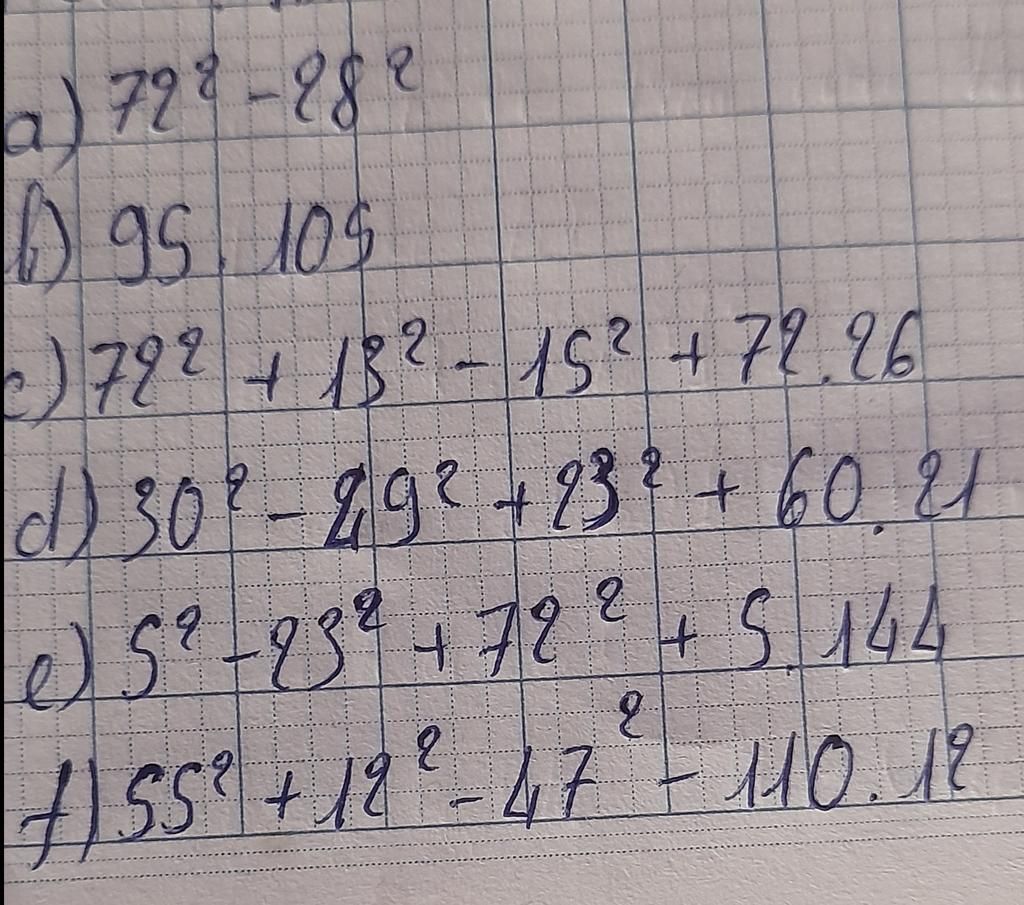 a) 72² - 28²
b) 95 . 105
c) 72² + 13² - 15² + 72.26
d) 30² - 29² + 23² + 60.21
e) 5² - 23² + 72² + 5.144
f) 55² + 12² - 47² - 110.12